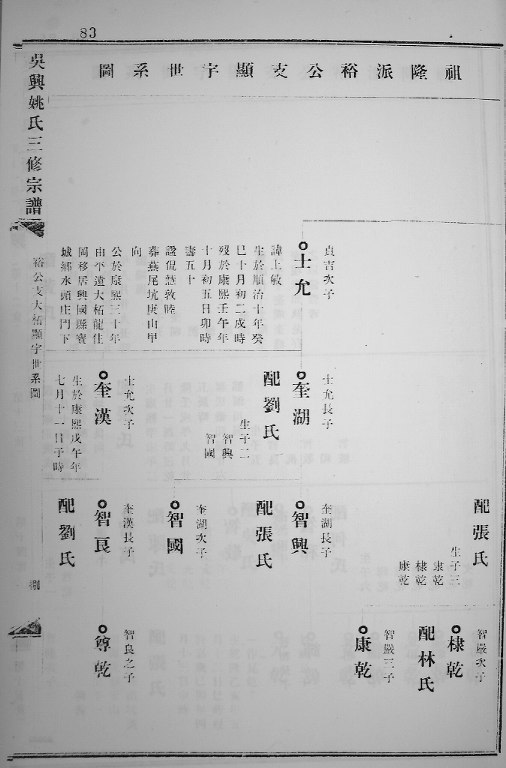 83
祖隆派裕公支顯字世系圖
吳興姚氏三修宗譜
裕公支大柘顯字世系圖
配張氏
生子三
隶乾
棣乾
康乾
智嚴次子
棣乾
配林氏
智嚴三子
康乾
貞吉次子
士允
諱上敏
生於順治十年癸
巳十月初二戍時
歿於康熙壬午年
十月初五日卯時
壽五十
諡侃慤敦睦
墓燕尾坑庚山甲
向
公於康熙三十年
由平遠大柘龍仕
岡移居興國縣寶
城鄉水頭庄門下
士允長子
奎湖
配劉氏
生子二
智興
智國
士允次子
奎漢
生於康熙戊午年
七月十一日子時
配劉氏
奎湖長子
智興
配張氏
奎湖次子
智國
奎漢長子
智良
智良之子
尊乾